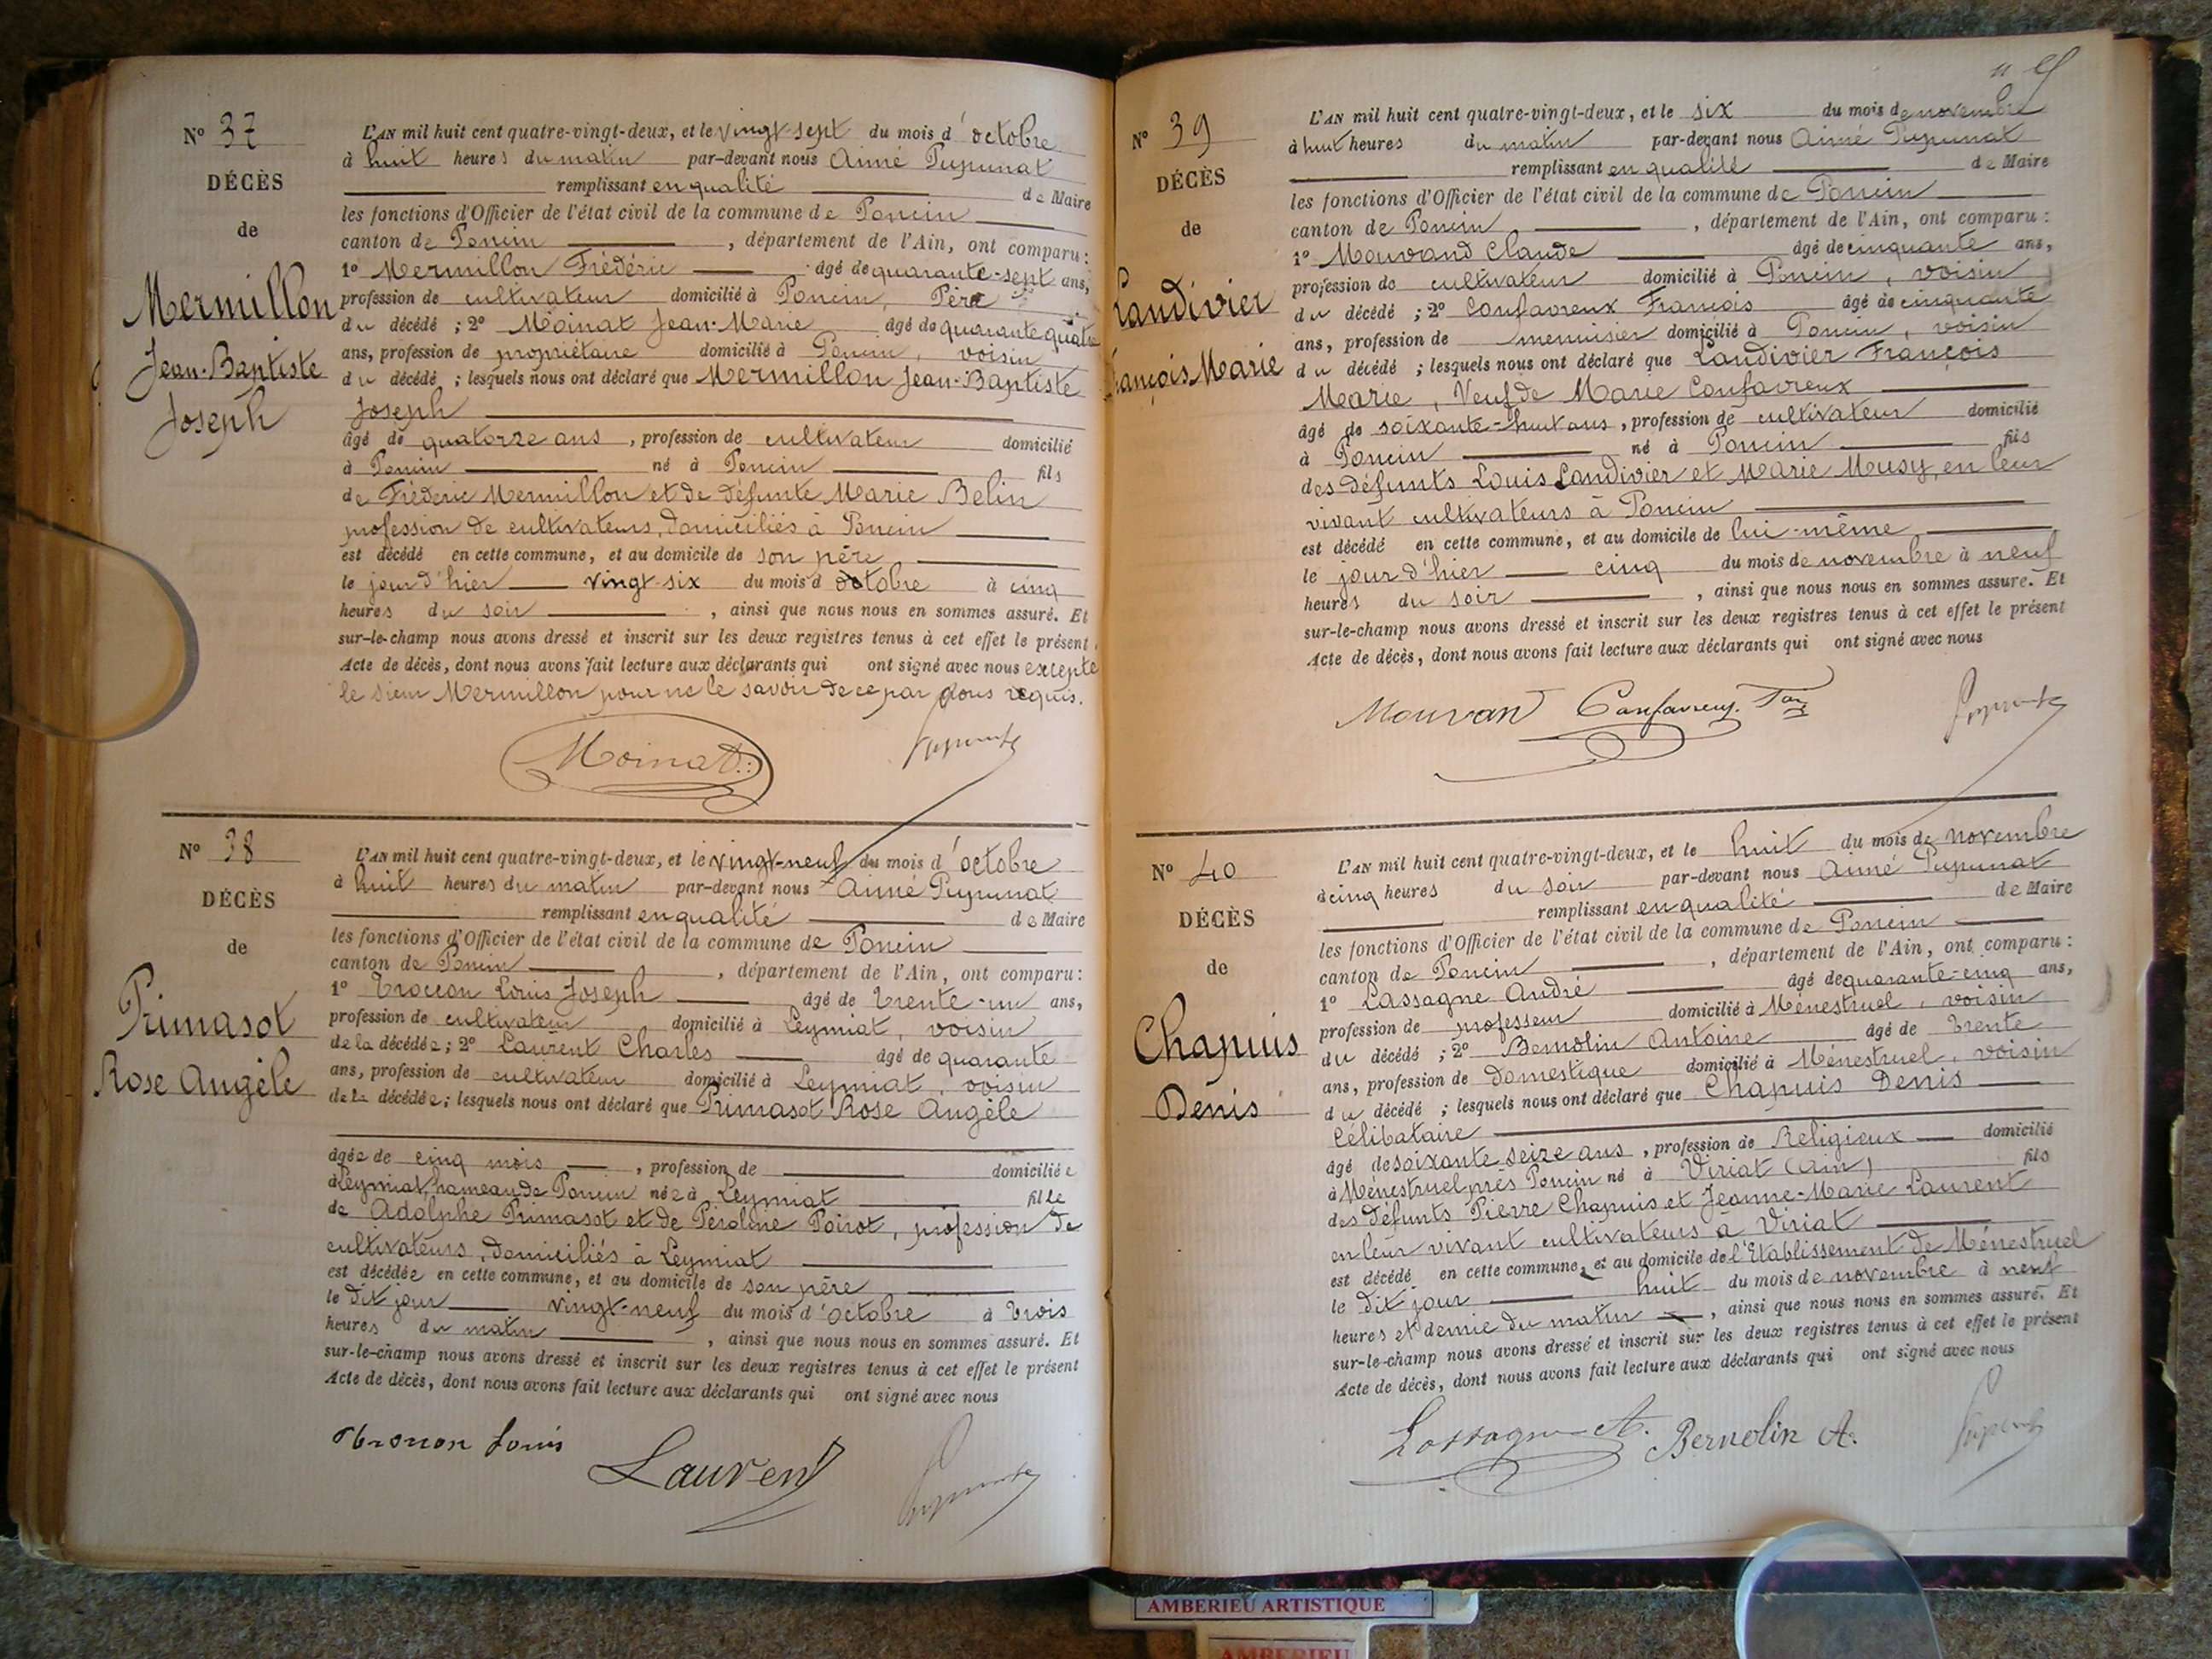 Nº 37
DÉCÈS
de
Mermillon
Jean-Baptiste
Joseph
L'AN mil huit cent quatre-vingt-deux, et le vingt-sept du mois d'octobre
à huit heures du matin par-devant nous Aimé Pupunat
remplissant en qualité de Maire
les fonctions d'Officier de l'état civil de la commune de Poncin
canton de Poncin, département de l'Ain, ont comparu :
1º Mermillon Frédéric âgé de quarante-sept ans,
profession de cultivateur domicilié à Poncin, Père
du décédé ; 2º Moinat Jean-Marie âgé de quarante quatre
ans, profession de propriétaire domicilié à Poncin, voisin
du décédé ; lesquels nous ont déclaré que Mermillon Jean-Baptiste
Joseph
âgé de quatorze ans, profession de cultivateur domicilié
à Poncin né à Poncin fils
de Frédéric Mermillon et de défunte Marie Belin
profession de cultivateurs, domiciliés à Poncin
est décédé en cette commune, et au domicile de son père
le jour d'hier vingt-six du mois d'octobre à cinq
heures du soir, ainsi que nous nous en sommes assuré. Et
sur-le-champ nous avons dressé et inscrit sur les deux registres tenus à cet effet le présent
Acte de décès, dont nous avons fait lecture aux déclarants qui ont signé avec nous excepté
le sieur Mermillon pour ne le savoir de ce par nous requis.
Moinat
Nº 38
DÉCÈS
de
Primasot
Rose Angèle
L'AN mil huit cent quatre-vingt-deux, et le vingt-neuf du mois d'octobre
à huit heures du matin par-devant nous Aimé Pupunat
remplissant en qualité de Maire
les fonctions d'Officier de l'état civil de la commune de Poncin
canton de Poncin, département de l'Ain, ont comparu :
1º Louis Joseph âgé de trente-un ans,
profession de cultivateur domicilié à Leymiat, voisin
de la décédée ; 2º Laurent Charles âgé de quarante
ans, profession de cultivateur domicilié à Leymiat, voisin
de la décédée ; lesquels nous ont déclaré que Primasot Rose Angèle
âgée de cinq mois, profession de domiciliée
à Leymiat, hameau de Poncin née à Leymiat fille
de Adolphe Primasot et de Péroline Poirot, profession de
cultivateurs, domiciliés à Leymiat
est décédée en cette commune, et au domicile de son père
le dit jour vingt-neuf du mois d'octobre à trois
heures du matin, ainsi que nous nous en sommes assuré. Et
sur-le-champ nous avons dressé et inscrit sur les deux registres tenus à cet effet le présent
Acte de décès, dont nous avons fait lecture aux déclarants qui ont signé avec nous
Louis
Laurent
Nº 39
DÉCÈS
de
Landivier
François Marie
L'AN mil huit cent quatre-vingt-deux, et le six du mois de novembre
à huit heures du matin par-devant nous Aimé Pupunat
remplissant en qualité de Maire
les fonctions d'Officier de l'état civil de la commune de Poncin
canton de Poncin, département de l'Ain, ont comparu :
1º Mouvand Claude âgé de cinquante ans,
profession de cultivateur domicilié à Poncin, voisin
du décédé ; 2º Confavreux François âgé de cinquante
ans, profession de menuisier domicilié à Poncin, voisin
du décédé ; lesquels nous ont déclaré que Landivier François
Marie, Veuf de Marie Confavreux
âgé de soixante-huit ans, profession de cultivateur domicilié
à Poncin né à Poncin fils
des défunts Louis Landivier et Marie Musy, en leur
vivant cultivateurs à Poncin
est décédé en cette commune, et au domicile de lui-même
le jour d'hier cinq du mois de novembre à neuf
heures du soir, ainsi que nous nous en sommes assuré. Et
sur-le-champ nous avons dressé et inscrit sur les deux registres tenus à cet effet le présent
Acte de décès, dont nous avons fait lecture aux déclarants qui ont signé avec nous
Mouvand Confavreux
Nº 40
DÉCÈS
de
Chapuis
Denis
L'AN mil huit cent quatre-vingt-deux, et le huit du mois de novembre
à cinq heures du soir par-devant nous Aimé Pupunat
remplissant en qualité de Maire
les fonctions d'Officier de l'état civil de la commune de Poncin
canton de Poncin, département de l'Ain, ont comparu :
1º Lassagne André âgé de quarante-cinq ans,
profession de professeur domicilié à Ménestruel, voisin
du décédé ; 2º Bernolin Antoine âgé de trente
ans, profession de domestique domicilié à Ménestruel, voisin
du décédé ; lesquels nous ont déclaré que Chapuis Denis
célibataire
âgé de soixante seize ans, profession de Religieux domicilié
à Ménestruel près Poncin né à Viriat (Ain) fils
des défunts Pierre Chapuis et Jeanne-Marie Laurent
en leur vivant cultivateurs à Viriat
est décédé en cette commune, et au domicile de l'Etablissement de Ménestruel
le dit jour huit du mois de novembre à neuf
heures et demie du matin, ainsi que nous nous en sommes assuré. Et
sur-le-champ nous avons dressé et inscrit sur les deux registres tenus à cet effet le présent
Acte de décès, dont nous avons fait lecture aux déclarants qui ont signé avec nous
Lassagne A. Bernolin A.
AMBERIEU ARTISTIQUE
AMBERIEU